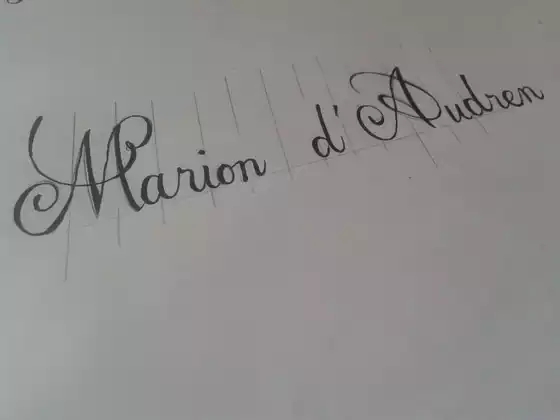 Marion d'Audren